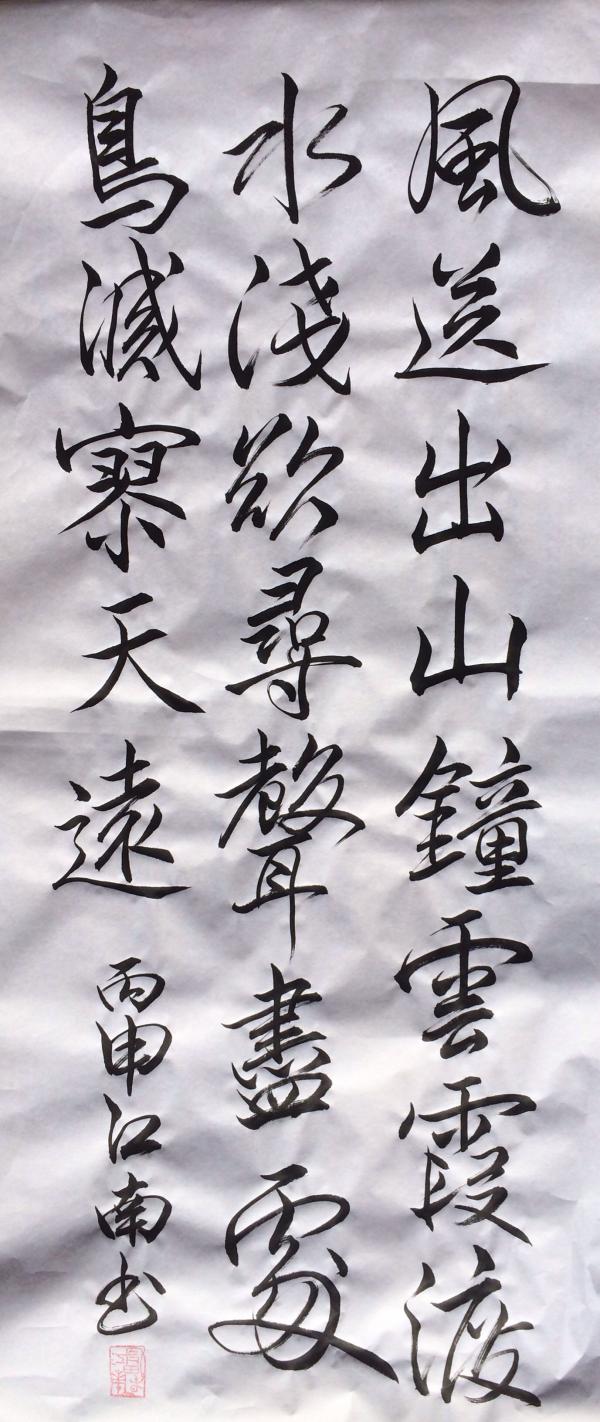 風送出山鐘雲霞渡
水淺欲尋聲盡處
鳥滅寥天遠
丙申江南书